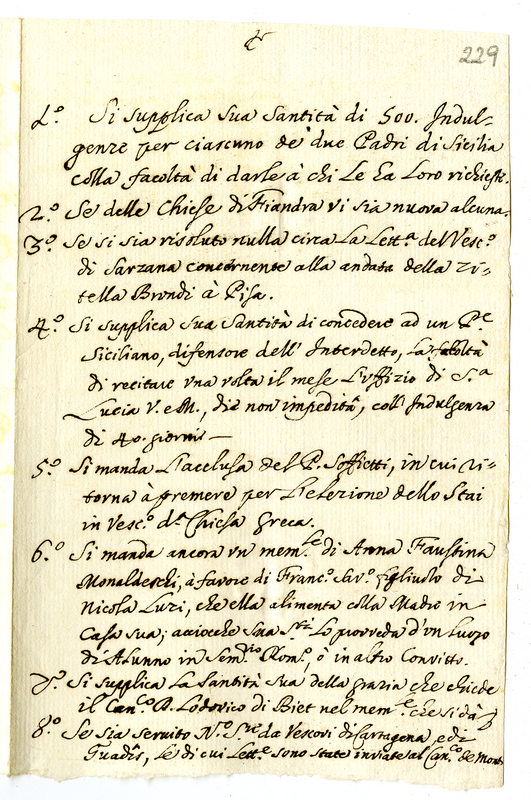 229
1.º Si supplica Sua Santità di 500. Indul-
genze per ciascuno de' due Padri di Sicilia
colla facoltà di darle à chi Le ha Loro richieste.
2.º Se delle Chiese di Fiandra vi sia nuova alcuna.
3.º Se si sia risoluto nulla circa La Lett.ª del Vesc.º
di Sarzana concernente alla andata della zi-
tella Brondi à Pisa.
4.º Si supplica Sua Santità di concedere ad un P.e
Siciliano, difensore dell' Interdetto, La facoltà
di recitare una volta il mese L'uffizio di S.ª
Lucia V. e M., die non impedità, coll' Indulgenza
di 40. giorni —
5.º Si manda L'acclusa del P. Soffietti, in cui ri-
torna à premere per L'elezione dello Stai
in Vesc.º d.ª Chiesa Greca.
6.º Si manda ancora un mem.le di Anna Faustina
Monaldeschi, à favore di Franc.º Sav.º figliuolo di
Nicola Luzi, che ella alimenta colla Madre in
Casa sua; acciocche Sua S.tà Lo provveda d'un Luogo
di Alunno in Sem.rio Rom.º, ò in altro Convitto.
7.º Si supplica La Santità Sua della grazia che chiede
il Can.co D. Lodovico di Biet nel mem.le che si dà
8.º Se sia servito N.º S.re da Vescovi di Cartagena, e di
Guadis, Le di cui Lett.e sono state inviate al Can.co de Monti